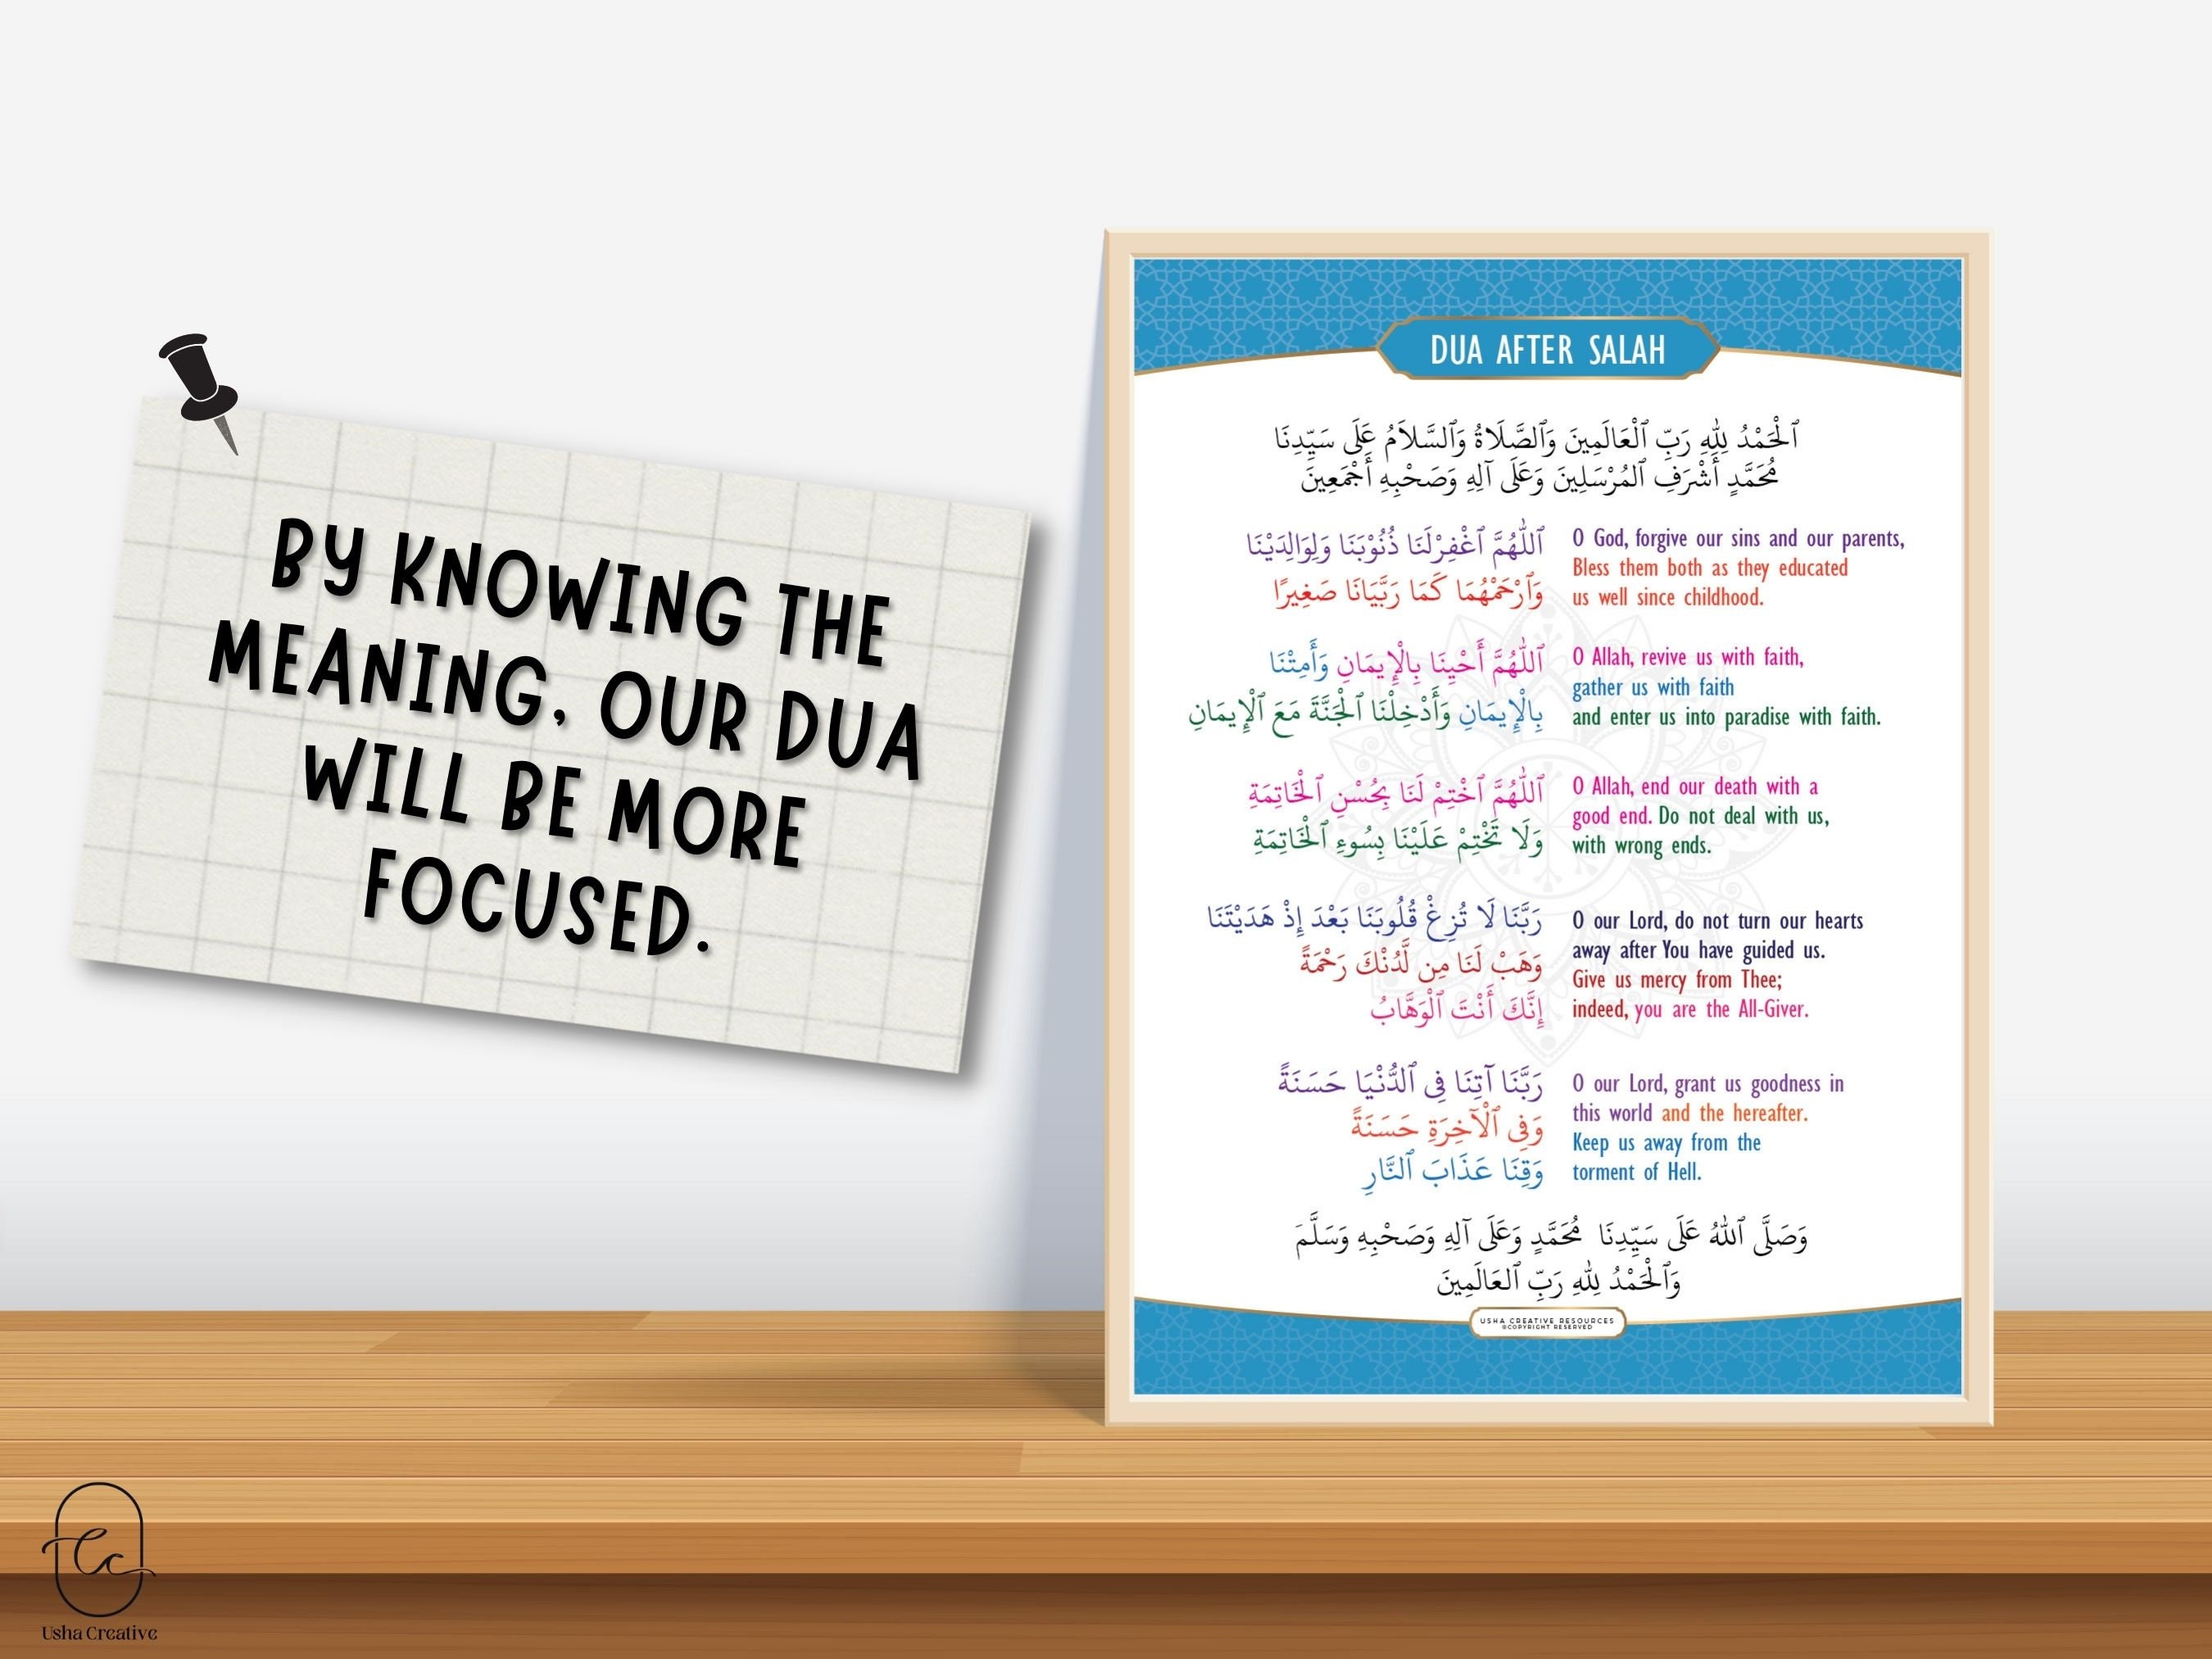 BY KNOWING THE
MEANING, OUR DUA
WILL BE MORE
FOCUSED.
DUA AFTER SALAH
ٱلْحَمْدُ لِلّٰهِ رَبِّ ٱلْعَالَمِينَ وَٱلصَّلَاةُ وَٱلسَّلَامُ عَلَى سَيِّدِنَا
مُحَمَّدٍ أَشْرَفِ ٱلمُرْسَلِينَ وَعَلَى آلِهِ وَصَحْبِهِ أَجْمَعِينَ
ٱللّٰهُمَّ ٱغْفِرْلَنَا ذُنُوْبَنَا وَلِوَالِدَيْنَا
وَٱرْحَمْهُمَا كَمَا رَبَّيَانَا صَغِيرًا
O God, forgive our sins and our parents,
Bless them both as they educated
us well since childhood.
ٱللّٰهُمَّ أَحْيِنَا بِالْإِيمَانِ وَأَمِتْنَا
بِالْإِيمَانِ وَأَدْخِلْنَا ٱلْجَنَّةَ مَعَ ٱلْإِيمَانِ
O Allah, revive us with faith,
gather us with faith
and enter us into paradise with faith.
ٱللّٰهُمَّ ٱخْتِمْ لَنَا بِحُسْنِ ٱلْخَاتِمَةِ
وَلَا تَخْتِمْ عَلَيْنَا بِسُوءِ ٱلْخَاتِمَةِ
O Allah, end our death with a
good end. Do not deal with us,
with wrong ends.
رَبَّنَا لَا تُزِغْ قُلُوبَنَا بَعْدَ إِذْ هَدَيْتَنَا
وَهَبْ لَنَا مِن لَّدُنْكَ رَحْمَةً
إِنَّكَ أَنْتَ ٱلْوَهَّابُ
O our Lord, do not turn our hearts
away after You have guided us.
Give us mercy from Thee;
indeed, you are the All-Giver.
رَبَّنَا آتِنَا فِى ٱلدُّنْيَا حَسَنَةً
وَفِى ٱلْآخِرَةِ حَسَنَةً
وَقِنَا عَذَابَ ٱلنَّارِ
O our Lord, grant us goodness in
this world and the hereafter.
Keep us away from the
torment of Hell.
وَصَلَّى ٱللّٰهُ عَلَى سَيِّدِنَا مُحَمَّدٍ وَعَلَى آلِهِ وَصَحْبِهِ وَسَلَّمَ
وَٱلْحَمْدُ لِلّٰهِ رَبِّ ٱلعَالَمِينَ
USHA CREATIVE RESOURCES
©COPYRIGHT RESERVED
Usha Creative